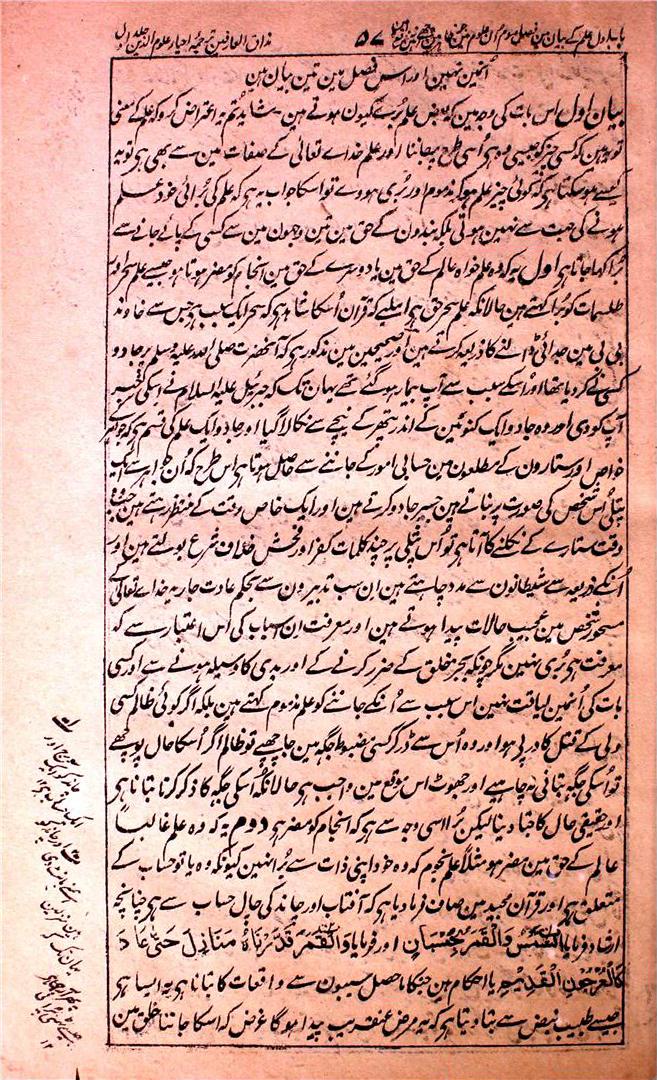 باب اول علم کے بیان مین فصل سوم ان علوم مین جنکو ۵۷ مذاق العارفین ترجمہ احیاء علوم الدین جلد اول
انمین نہین اور اس فصل مین تین بیان ہین
بیان اول اس بات کی وجہ مین کہ بعض علم برے کیون ہوتے ہین۔ شاید تم یہ اعتراض کرو کہ علم کے معنی
تو یہ ہین کہ کسی چیز کو جیسی وہ ہے اُسی طرح پہچاننا اور علم خداے تعالیٰ کے صفات مین سے بھی ہے تو یہ
کیسے ہو سکتا ہے کہ کوئی چیز علم ہو کر مذموم اور بُری ہووے تو اسکا جواب یہ ہے کہ علم کی بُرائی خود علم
ہونے کی جہت سے نہین ہوتی بلکہ بندون کے حق مین تین وجہون مین سے کسی کے پائے جانے سے
بُرا کہا جاتا ہے اول یہ کہ وہ علم خواہ عالم کے حق مین یا دوسرے کے حق مین انجام کو مضر ہوتا ہو جیسے علم سحر اور
طلسمات کو بُرا کہتے ہین حالانکہ علم سحر حق ہے اسلیے کہ قرآن اُسکا شاہد ہے کہ سحر ایک سبب ہے جس سے خاوند
بی بی مین جدائی ڈالنے کا ذریعہ کرتے ہین اور صحیحین مین مذکور ہے کہ آنحضرت صلی اللہ علیہ وسلم پر جادو
کسی نے کر دیا تھا اور اُسکے سبب سے آپ بیمار ہو گئے تھے یہان تک کہ جبرئیل علیہ السلام نے اسکی خبر
آپ کو دی اور وہ جادو ایک کنوئین کے اندر پتھر کے نیچے سے نکالا گیا اور جادو ایک علم کی قسم ہے کہ جواہر کے
خواص اور ستارون کے مطلعون مین حسابی امور کے جاننے سے حاصل ہوتا ہے اس طرح کہ اُن جواہر سے ایک
پتلی اُس شخص کی صورت پر بناتے ہین جسپر جادو کرتے ہین اور ایک خاص وقت کے منتظر رہتے ہین جب وہ
وقت ستارے کے نکلنے کا آتا ہے تو اُس پتلی پر چند کلمات کفر اور فحش خلاف شرع بولتے ہین اور
اُنکے ذریعہ سے شیطانون سے مدد چاہتے ہین ان سب تدبیرون سے بحکم عادت جاریہ خداے تعالیٰ کی
مسحور شخص مین عجیب حالات پیدا ہوتے ہین اور معرفت ان اسباب کی اس اعتبار سے کہ
معرفت ہے بُری نہین مگر چونکہ بجز مخلوق کے ضرر کرنے کے اور بدی کا وسیلہ ہونے سے اور کسی
بات کی اُنمین لیاقت نہین اس سبب سے اُنکے جاننے کو علم مذموم کہتے ہین بلکہ اگر کوئی ظالم کسی
ولی کے قتل کا درپی ہو اور وہ اُس سے ڈر کر کسی مضبوط جگہ مین جا چھپے تو ظالم اگر اُسکا حال پوچھے
تو اُسکی جگہ بتانی نہ چاہیے اور جھوٹ اس موقع مین واجب ہے حالانکہ اُسکی جگہ کا ذکر کرنا بتانا ہے
اور حقیقی حال کا جتا دینا لیکن بُرا اسی وجہ سے ہے کہ انجام کو مضر ہے دوم یہ کہ وہ علم غالباً
عالم کے حق مین مضر ہو مثلاً علم نجوم کہ وہ خود اپنی ذات سے بُرا نہین کیونکہ وہ یا تو حساب کے
متعلق ہے اور قرآن مجید مین صاف فرما دیا ہے کہ آفتاب اور چاند کی چال حساب سے ہے چنانچہ
ارشاد فرمایا الشَّمْسُ وَالْقَمَرُ بِحُسْبَانٍ اور فرمایا وَالْقَمَرَ قَدَّرْنَاهُ مَنَازِلَ حَتّٰى عَادَ
كَالْعُرْجُوْنِ الْقَدِيْمِ یا احکام ہین جنکا ماحصل سببون سے واقعات کا بتانا ہے یہ ایسا ہے
جیسے طبیب نبض سے بتا دیتا ہے کہ یہ مرض عنقریب پیدا ہوگا غرض کہ اسکا جاننا خلق مین
۱۲